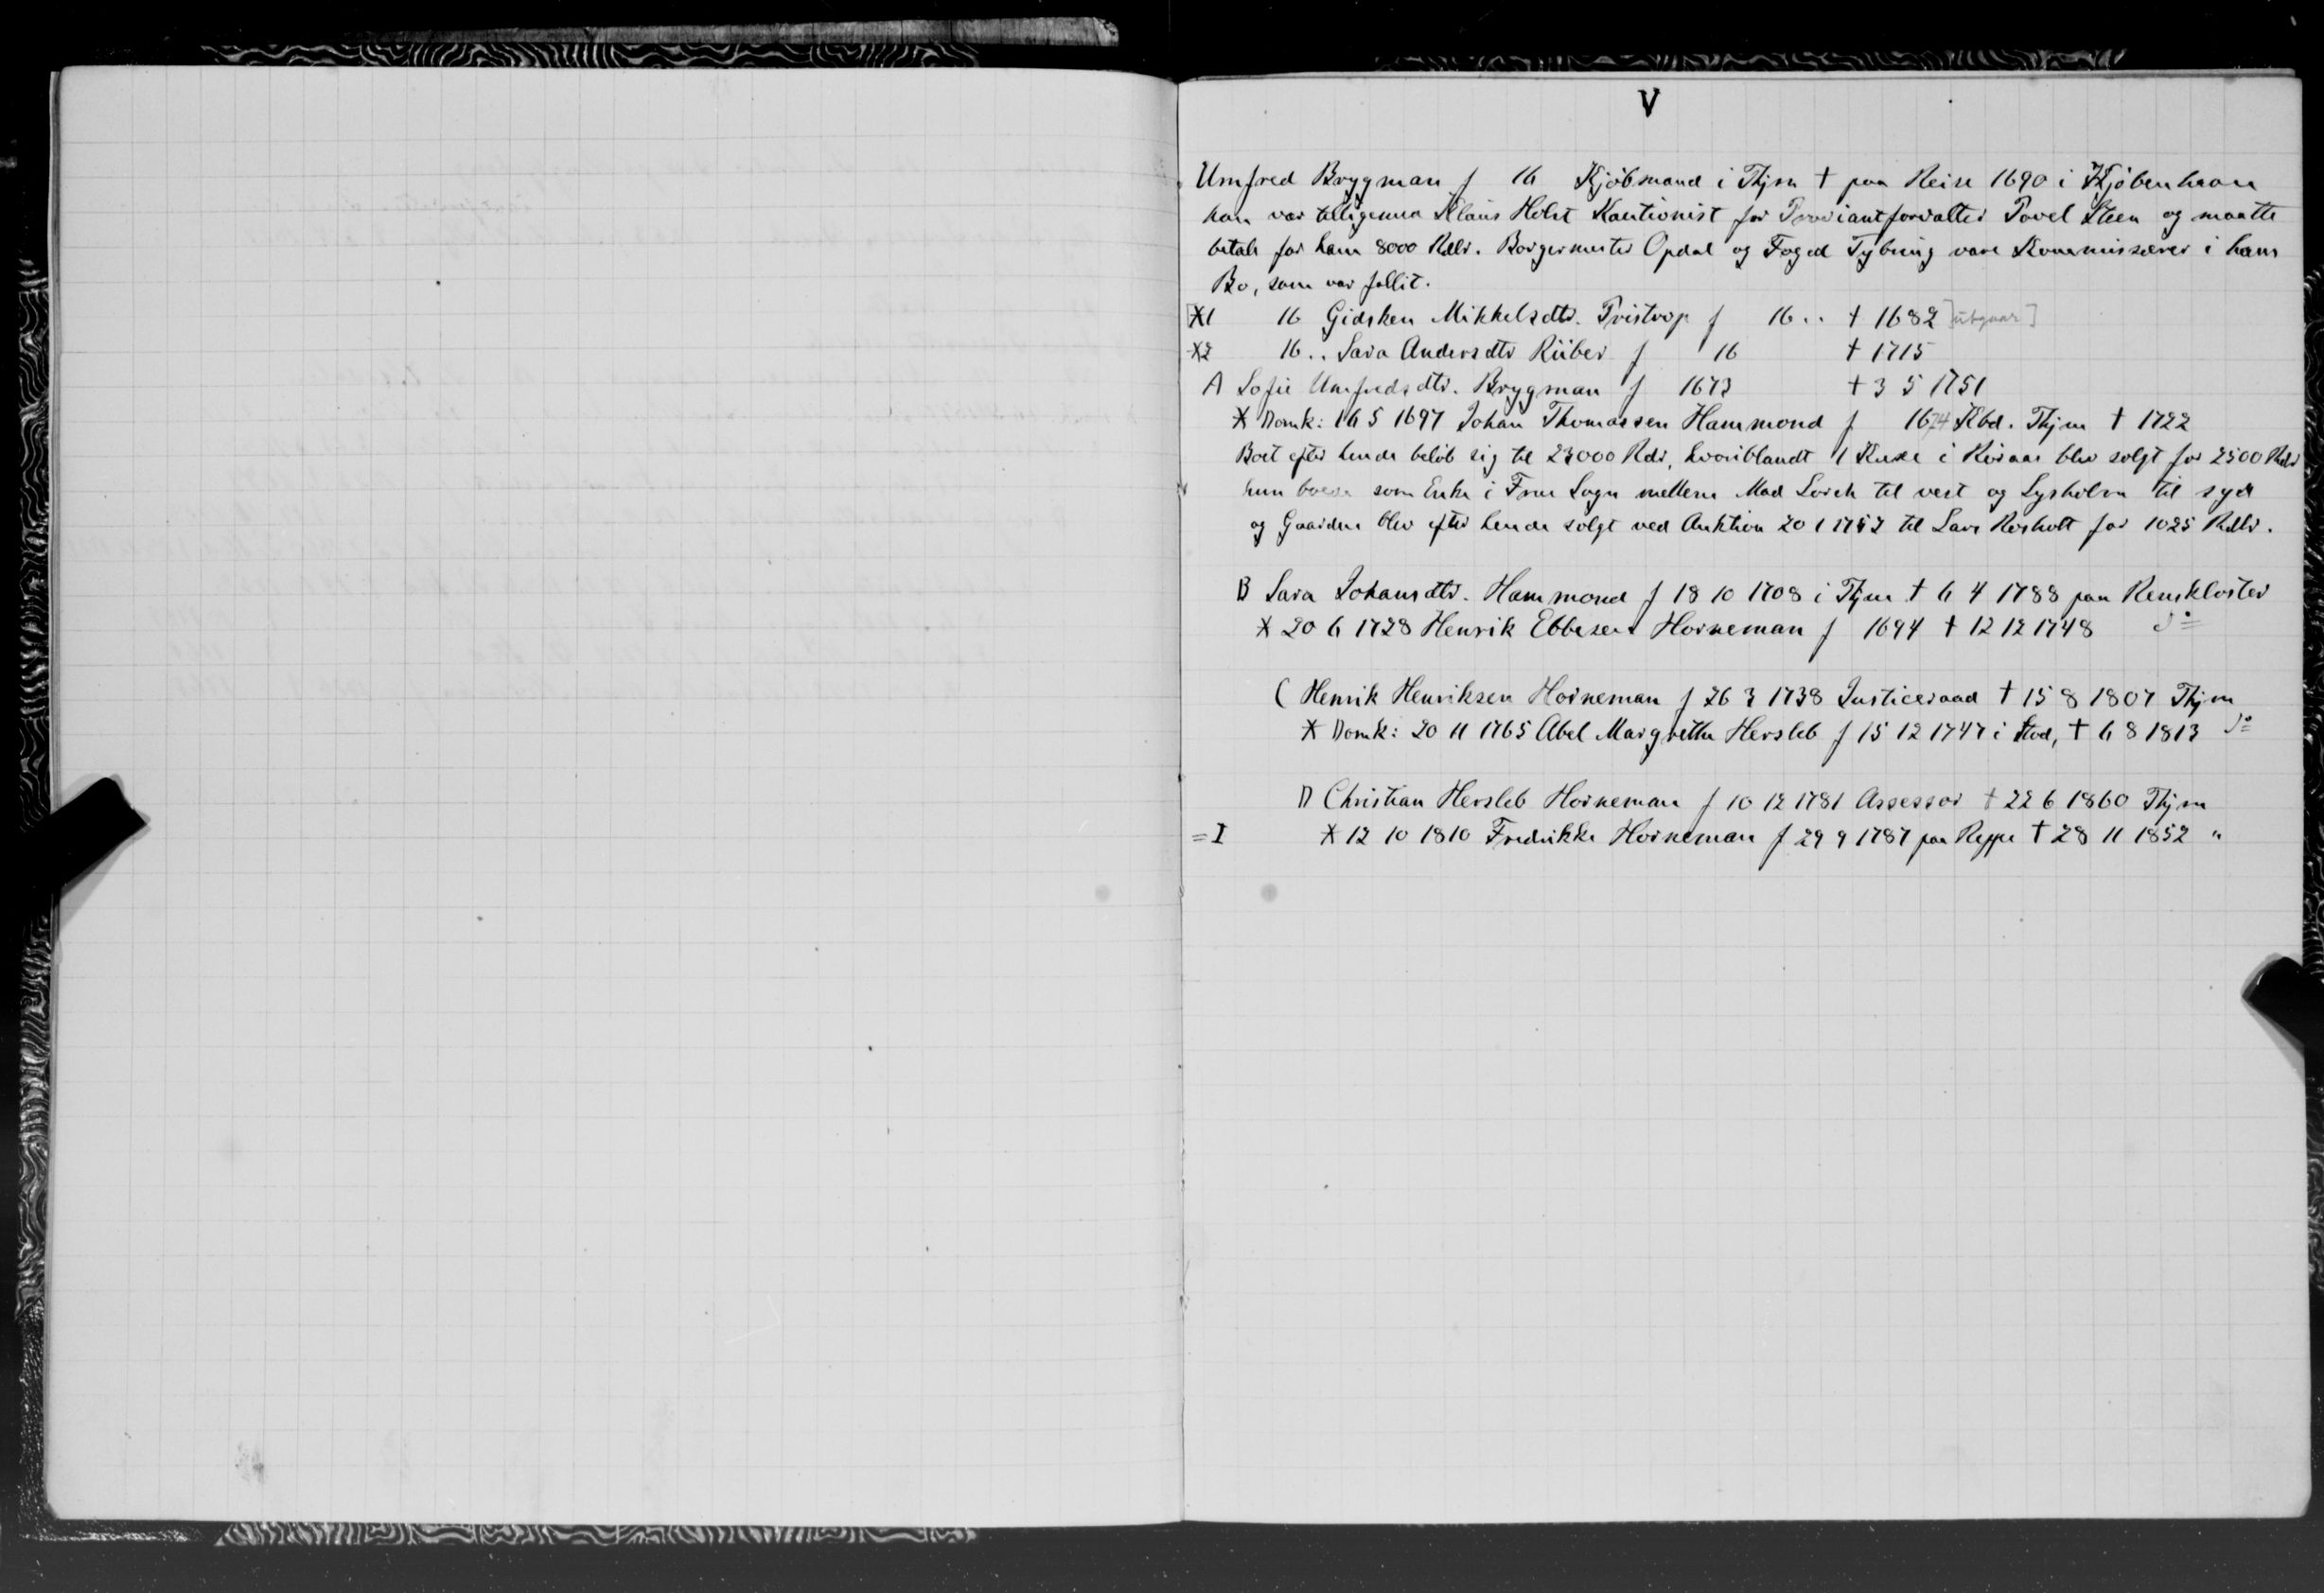 V
Umfred Brygman f 16 Kjöbmand i Thjm † paa Reise 1690 i Kjöbenhavn
han var tilligemed Klaus Holst Kautionist for Proviantforvalter Povel Steen og maatte
betale for ham 8000 Rdlr. Borgermester Opdal og Foged Tybring vare Kommissærer i hans
Bo, som var fallit.
*1 16 Gidsken Mikkelsdtr. Pristrop f 16.. † 1682 [utgaar]
*2 16.. Sara Andersdtr Rüber f 16 † 1715
A Sofie Umfredsdtr. Brygman f 1673 † 3 5 1751
* Domk: 16 5 1697 Johan Thomassen Hammond f 1674 Kbd. Thjm † 1722
Boet efter hende beløb sig til 23000 Rdr, hvoriblandt 1 Kuxe i Röraas blev solgt for 2500 Rdlr
hun boede som Enke i Frue Sogn mellem Mad Lorch til vest og Lysholm til syd
og Gaarden blev efter hende solgt ved Auktion 20 1 1752 til Lars Rosholt for 1025 Rdlr.
B Sara Johansdtr. Hammond f 18 10 1708 i Thjm † 6 4 1788 paa Reinskloster
* 20 6 1728 Henrik Ebbesen Horneman f 1694 † 12 12 1748 do
C Henrik Henriksen Horneman f 26 3 1738 Justiceraad † 15 8 1807 Thjm
* Domk: 20 11 1765 Abel Margrethe Hersleb f 15 12 1747 i Stod, † 6 8 1813 do
D Christian Hersleb Horneman f 10 12 1781 Assessor † 22 6 1860 Thjm
= I * 12 10 1810 Fredrikke Horneman f 29 9 1787 paa Reppe † 28 11 1852 "